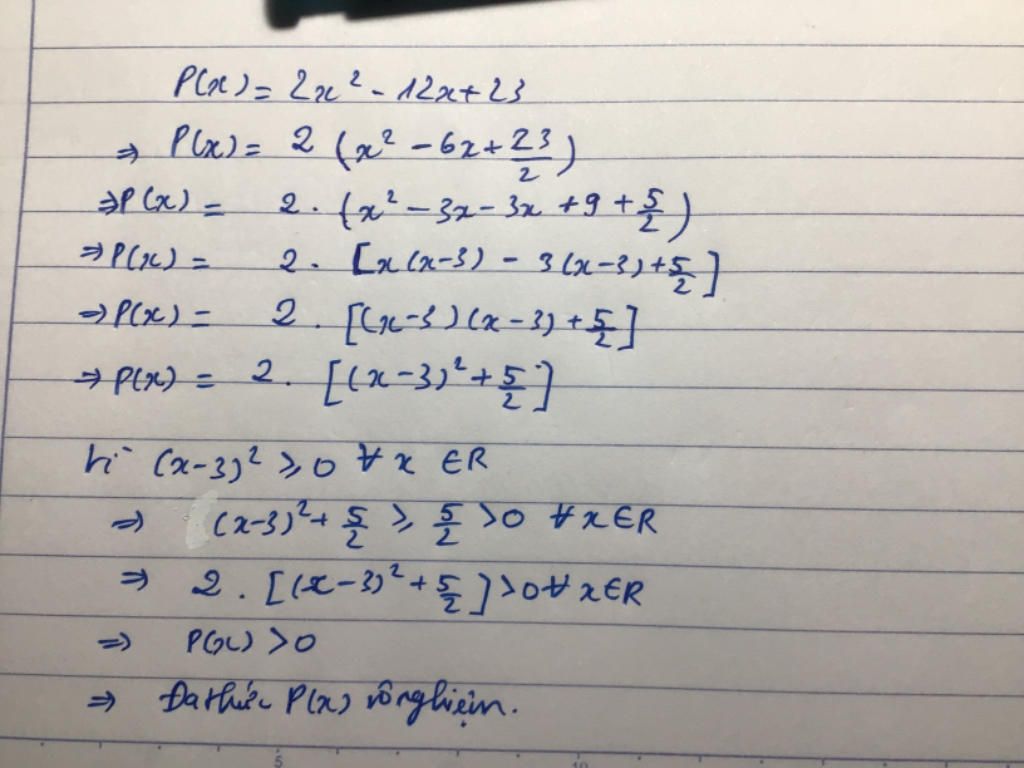 P(x) = 2x² - 12x + 23
⇒ P(x) = 2 (x² - 6x + 23/2)
⇒ P(x) = 2 . (x² - 3x - 3x + 9 + 5/2)
⇒ P(x) = 2 . [x(x-3) - 3(x-3) + 5/2]
⇒ P(x) = 2 . [(x-3)(x-3) + 5/2]
⇒ P(x) = 2 . [(x-3)² + 5/2]
Vì (x-3)² ≥ 0 ∀ x ∈ R
⇒ (x-3)² + 5/2 ≥ 5/2 > 0 ∀ x ∈ R
⇒ 2 . [(x-3)² + 5/2] > 0 ∀ x ∈ R
⇒ P(x) > 0
⇒ Đa thức P(x) vô nghiệm.
5 10